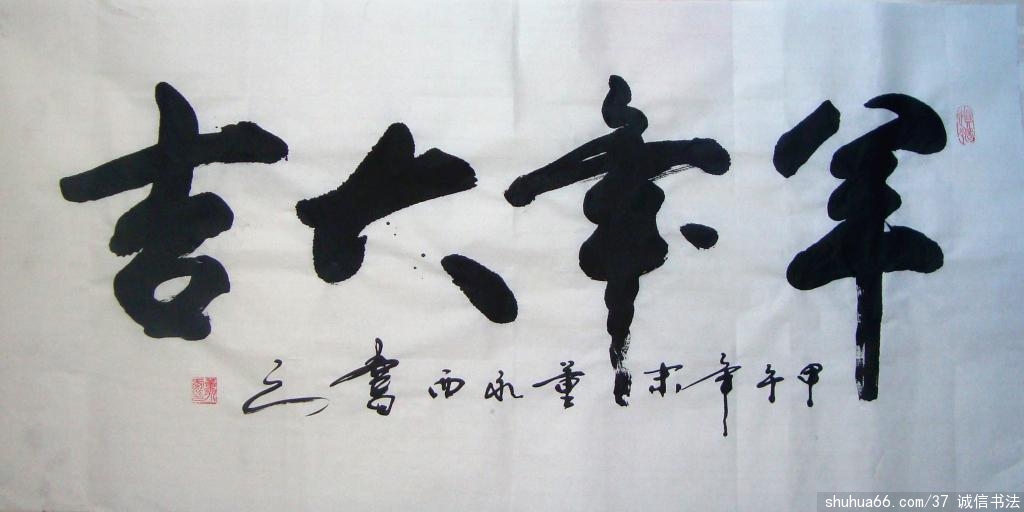 羊年大吉
甲午年末董永西書之
shuhua66.com/37 诚信书法